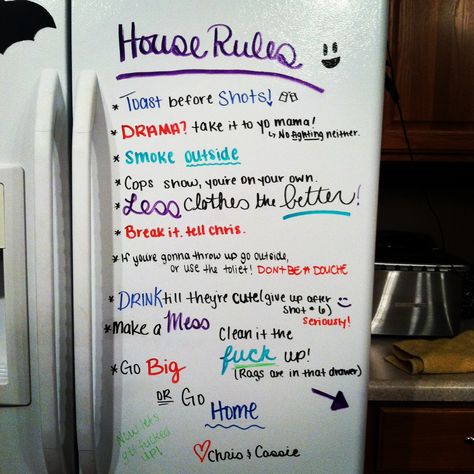 House Rules
* Toast before Shots!
* DRAMA? take it to yo mama!
↳ No fighting neither.
* Smoke outside
* Cops show, you're on your own.
* Less clothes the better!
* Break it. tell Chris.
* If you're gonna throw up go outside,
or use the toliet! DON'T BE A DOUCHE
* DRINK till they're cute (give up after
shot #6)
seriously!
* Make a Mess
Clean it the
fuck up!
(Rags are in that drawer)
* Go Big
OR Go
Home
Now let's
get fucked
UP!
♡Chris & Cassie